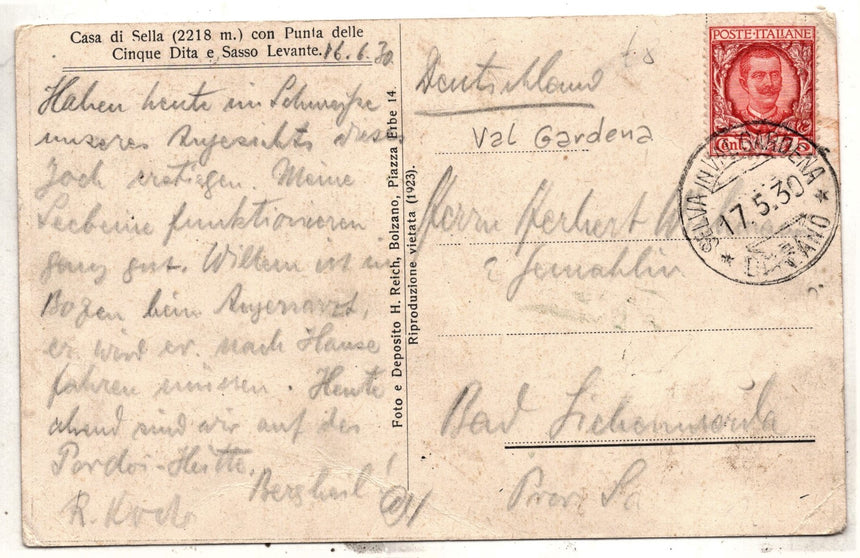 Casa di Sella (2218 m.) con Punta delle
Cinque Dita e Sasso Levante. 16.6.30
Haben heute im Schweiße
unseres Angesichts dieses
Joch erstiegen. Meine
Seebeine funktionieren
ganz gut. Willem ist in
Bozen beim Augenarzt,
er wird ev. nach Hause
fahren müssen. Heute
abend sind wir auf der
Pordoi-Hütte.
Bergheil!
R. Koch
Foto e Deposito H. Reich, Bolzano, Piazza Erbe 14.
Riproduzione vietata (1923).
Deutschland
Val Gardena
Herrn Herbert
Gemahlin
Bad Liebenwerda
Prov. Sa
POSTE·ITALIANE
SELVA IN VAL GARDENA
17.5.30